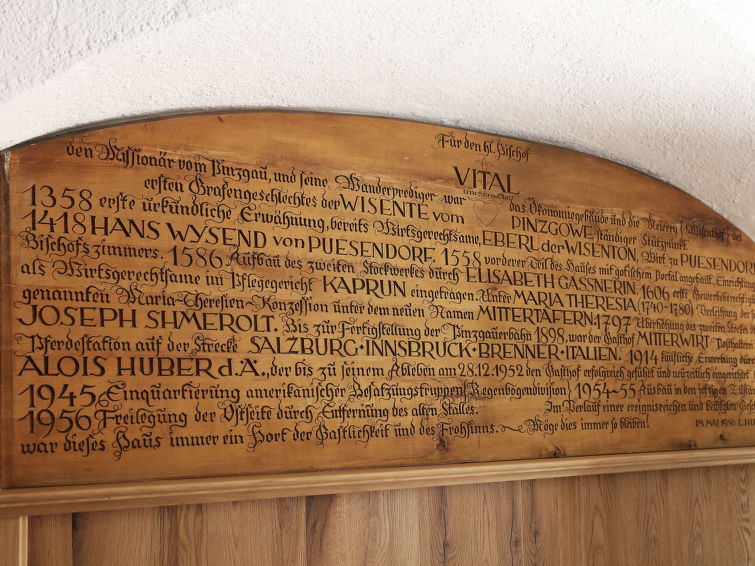 Für den hl. Bischof
VITAL
den Missionär vom Pinzgau, und seine Wanderprediger war das Ökonomiegebäude und die Meierey
ersten Grafengeschlechtes der WISENTE vom PINZGOWE, ständiger Stützpunkt.
1358 erste urkundliche Erwähnung, bereits Wirtsgerechtsame, EBERL der WISENTON, Wirt zu PUESENDORF
1418 HANS WYSEND von PUESENDORF. 1558 vorderer Teil des Hauses mit gotischem Portal angebaut.
Bischofszimmers. 1586 Aufbau des zweiten Stockwerkes durch ELISABETH GASSNERIN. 1606 erste
als Wirtsgerechtsame im Pflegegericht KAPRUN eingetragen. Unter MARIA THERESIA (1740-1780) Verleihung der
genannten Maria-Theresien-Konzession unter dem neuen Namen MITTERTAFERN. 1797 des zweiten
JOSEPH SHMEROLT. Bis zur Fertigstellung der Pinzgauerbahn 1898, war der Gasthof MITTERWIRT
Pferdestation auf der Strecke SALZBURG·INNSBRUCK·BRENNER·ITALIEN. 1914 käufliche Erwerbung
ALOIS HUBER d.Ä., der bis zu seinem Ableben am 28.12.1952 den Gasthof erfolgreich geführt und neuzeitlich
1945 Einquartierung amerikanischer Besatzungstruppen (Regenbogendivision) 1954-55 Ausbau in den
1956 Freilegung der Ostseite durch Entfernung des alten Stalles. Im Verlauf einer ereignisreichen und
war dieses Haus immer ein Hort der Gastlichkeit und des Frohsinns. Möge dies immer so bleiben!
IM MAI 1956